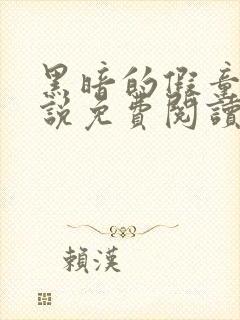 黑暗的假童
說免費閱讀
賴漢